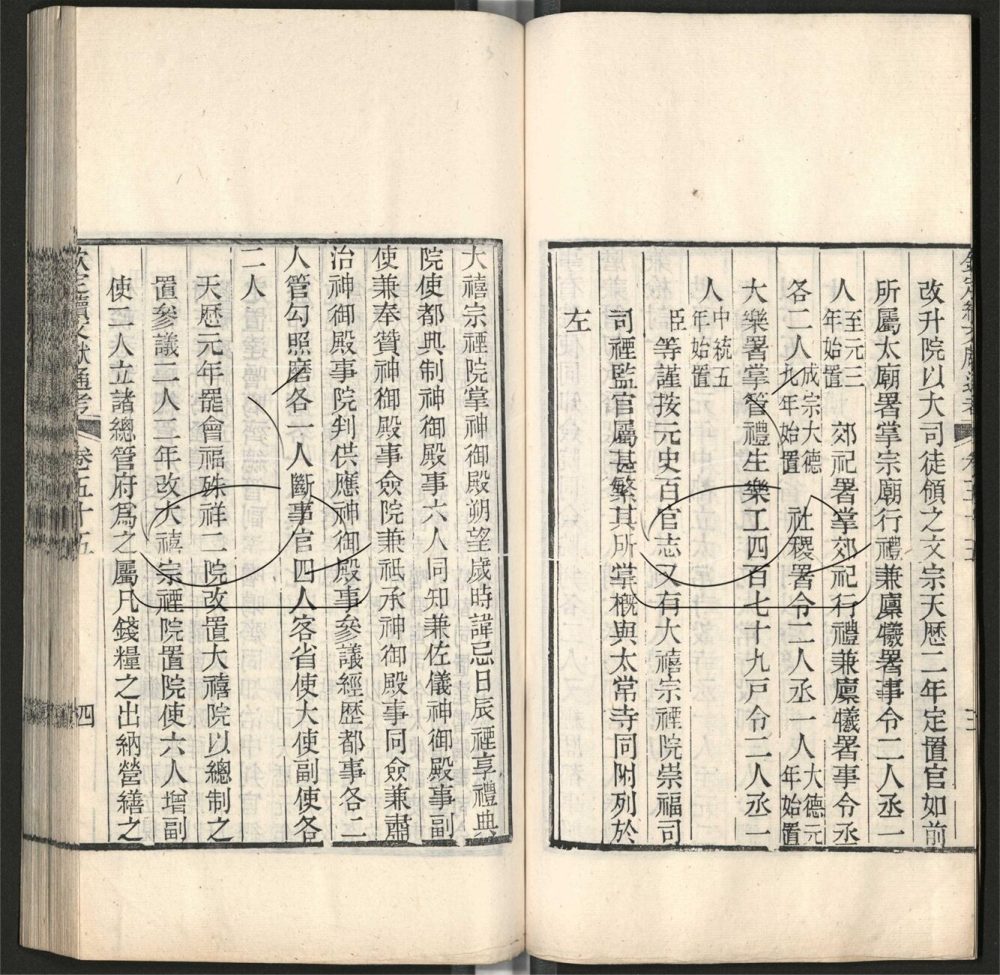 改升院以大司徒領之文宗天歷二年定置官如前
所屬太廟署掌宗廟行禮兼廩犧署事令二人丞一
人至元三年始置 郊祀署掌郊祀行禮兼廩犧署事令丞
各二人成宗大德九年始置 社稷署令二人丞一人大德元年始置
大樂署掌管禮生樂工四百七十九戶令二人丞一
人中統五年始置
臣等謹按元史百官志又有大禧宗禋院崇福司
司禋監官屬甚繁其所掌概與太常寺同附列於
左
大禧宗禋院掌神御殿朔望歲時諱忌日辰禋享禮典
院使都典制神御殿事六人同知兼佐儀神御殿事副
使兼奉贊神御殿事僉院兼祗承神御殿事同僉兼肅
治神御殿事院判供應神御殿事參議經歷都事各二
人管勾照磨各一人斷事官四人客省使大使副使各
二人
天歷元年罷會福殊祥二院改置大禧院以總制之
置參議二人二年改大禧宗禋院置院使六人增副
使三人立諸總管府為之屬凡錢糧之出納營繕之
欽定續文獻通考 卷五十五 四